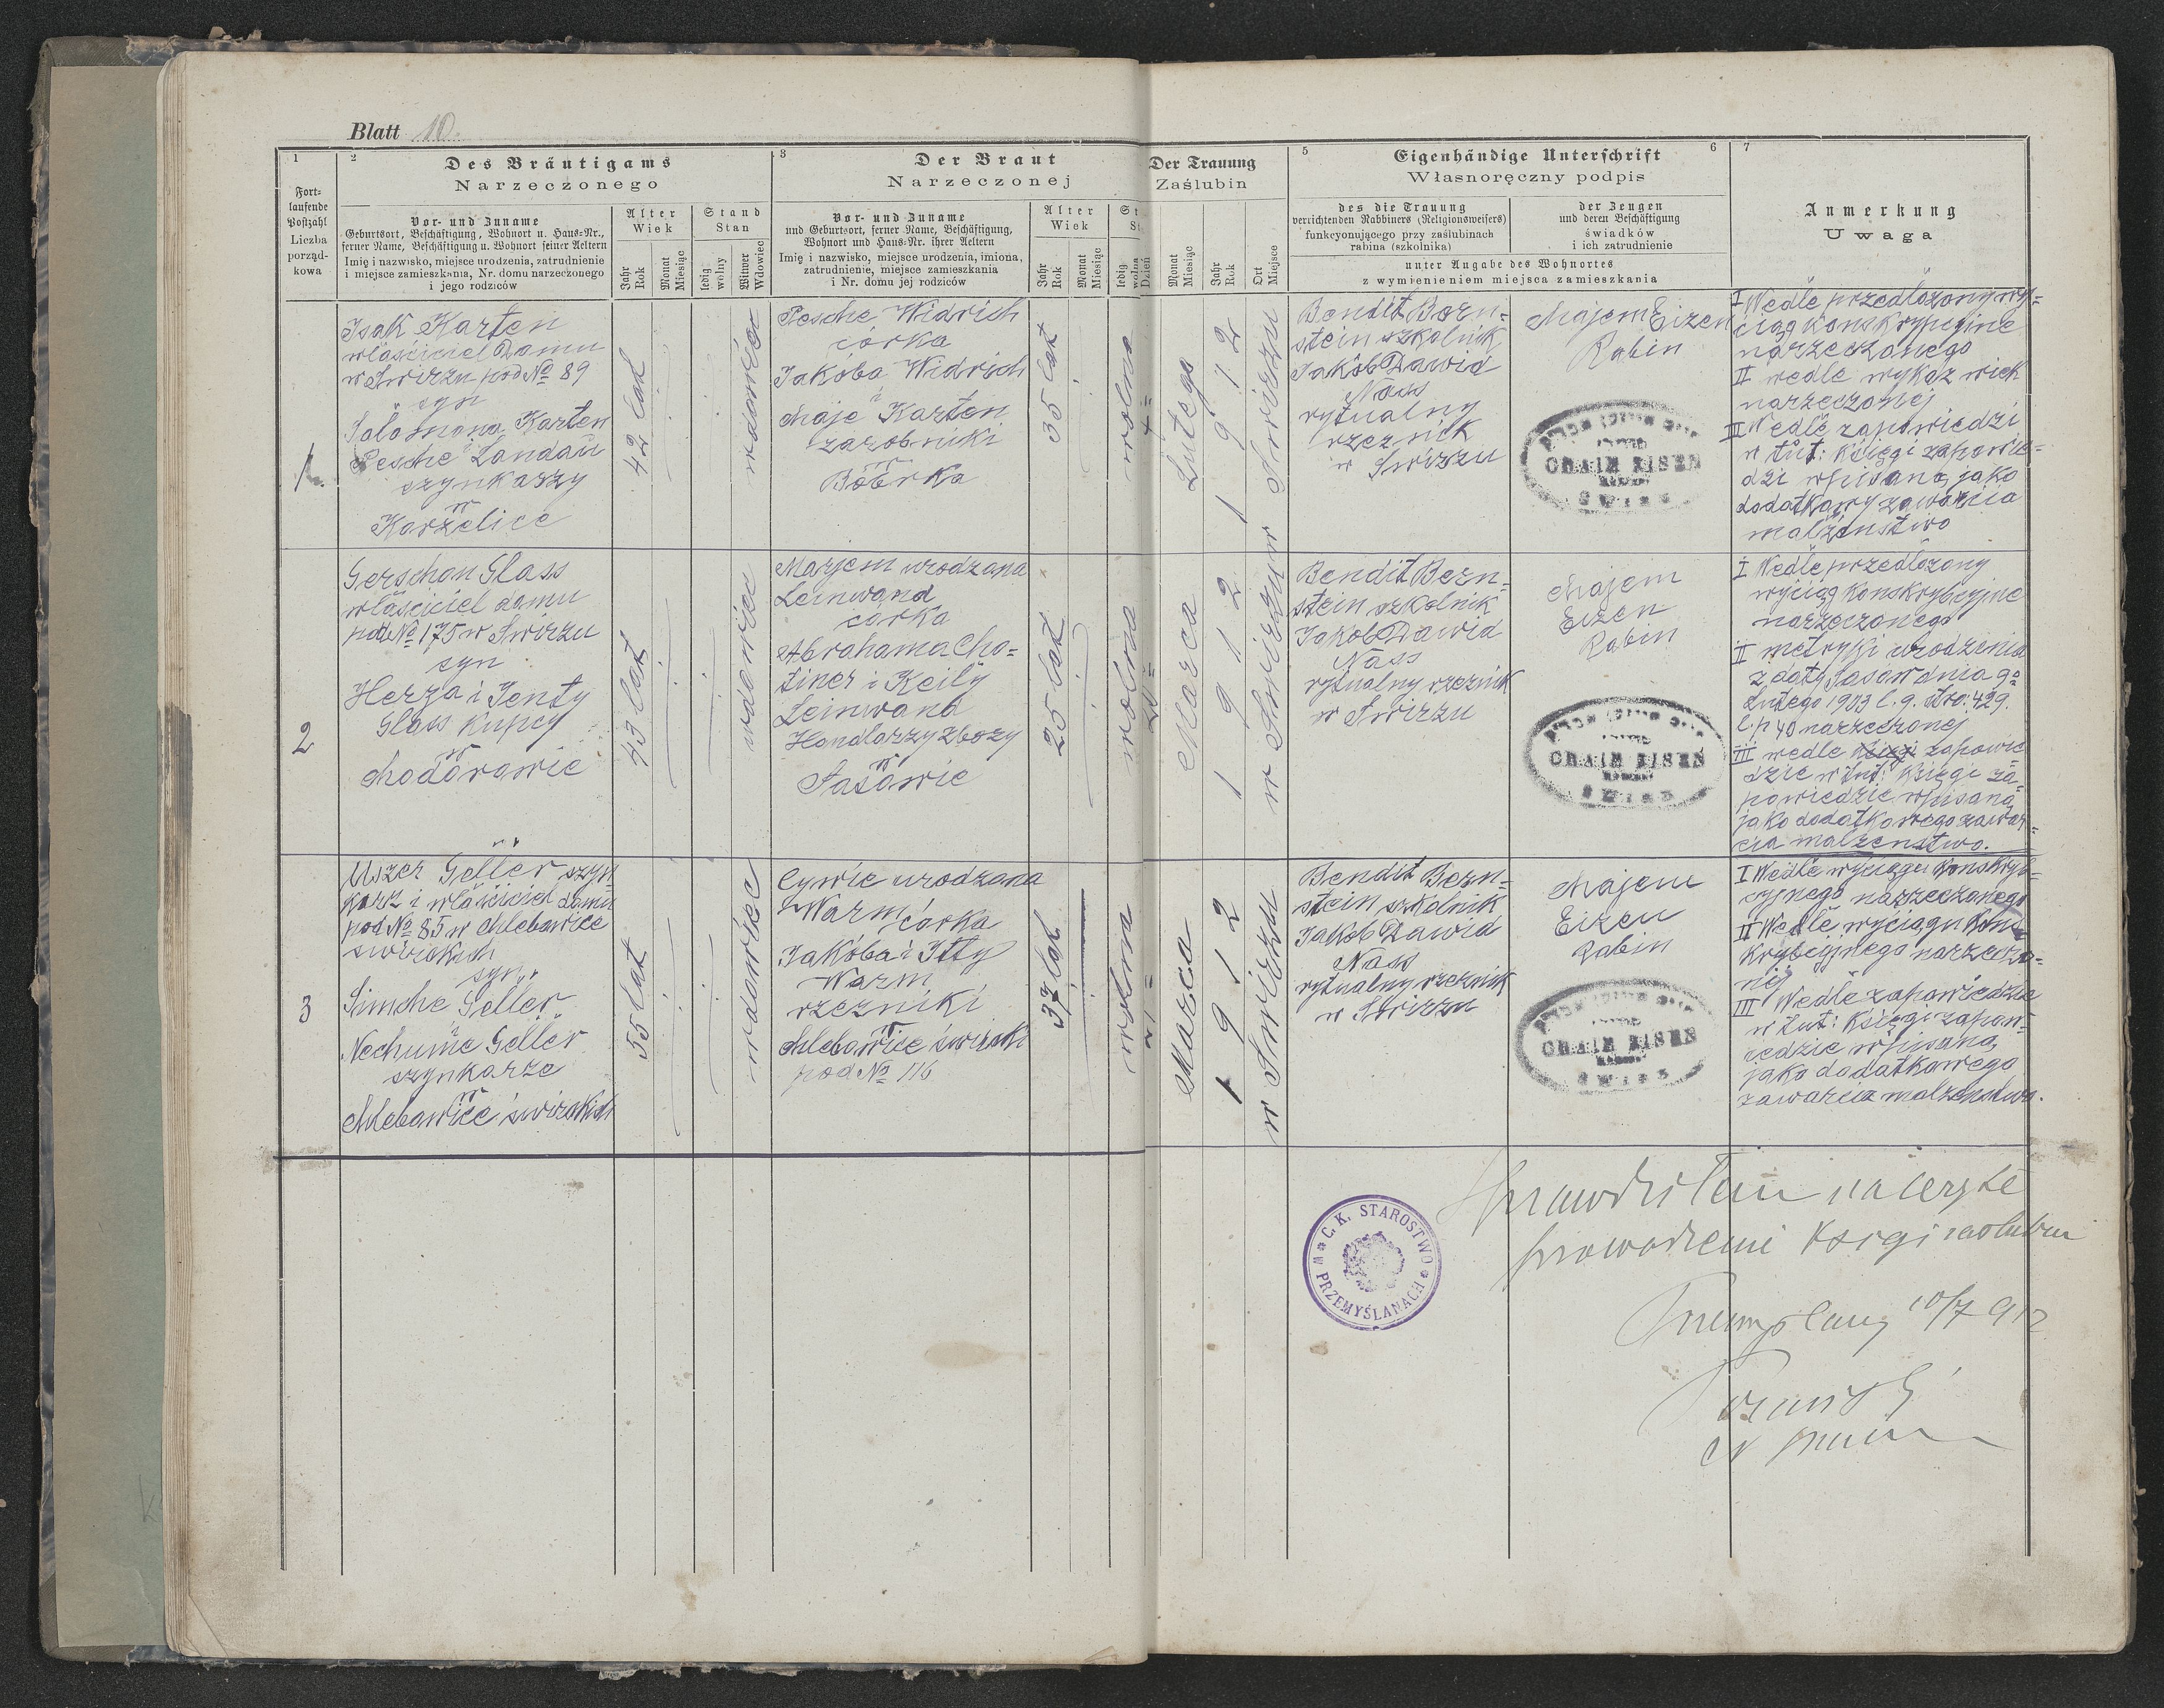 Blatt 10.
1
Fort-
laufende
Postzahl
Liczba
porząd-
kowa
2
Des Bräutigams
Narzeczonego
Vor- und Zuname
Geburtsort, Beschäftigung, Wohnort u. Haus-Nr.,
ferner Name, Beschäftigung u. Wohnort seiner Aeltern
Imię i nazwisko, miejsce urodzenia, zatrudnienie
i miejsce zamieszkania, Nr. domu narzeczonego
i jego rodziców
Alter
Wiek
Jahr
Rok
Monat
Miesiąc
Stand
Stan
ledig
wolny
Witwer
Wdowiec
3
Der Braut
Narzeczonej
Vor- und Zuname
und Geburtsort, ferner Name, Beschäftigung,
Wohnort und Haus-Nr. ihrer Aeltern
Imię i nazwisko, miejsce urodzenia, imiona,
zatrudnienie, miejsce zamieszkania
i Nr. domu jej rodziców
Alter
Wiek
Jahr
Rok
Monat
Miesiąc
ledig
wolna
Der Trauung
Zaślubin
Dzień
Monat
Miesiąc
Jahr
Rok
Ort
Miejsce
5
Eigenhändige Unterschrift
6
Własnoręczny podpis
des die Trauung
verrichtenden Rabbiners (Religionsweisers)
funkcyonującego przy zaślubinach
rabina (szkolnika)
der Zeugen
und deren Beschäftigung
świadków
i ich zatrudnienie
unter Angabe des Wohnortes
z wymienieniem miejsca zamieszkania
7
Anmerkung
Uwaga
1.
Isak Karten
właściciel Domu
w Swirzu pod No 89
syn
Salomona Karten
Pesche Landau
szynkarzy
w
Korzelice
42 lat
wdowiec
Pesche Widrich
córka
Jakóba Widrich
i
Chaje Karten
zarobniki
w
Bóbrka
35 lat
wolna
4
Lutego
1912
w Swirzu
Bendit Bern=
stein szkolnik
Jakób Dawid
Nass
rytualny
rzeznik
w Swirzu
Chajem Eizen
Rabin
CHAIM EISEN
I Wedle przedlozony wy=
ciąg konskrypcijne
narzeczonego
II wedle wykaz wiek
narzeczonej
III Wedle zapowiedzi
w tut: Księgi zapowie=
dzi wpisaną jako
dodatkowy zawarcia
malżenstwo
2
Gerschon Glass
właściciel domu
pod No 175 w Swirzu
syn
Herza i Jenty
Glass Kupcy
w
Chodorowie
43 lat
wdowiec
Marjem urodzana
Leinwand
córka
Abrahama Cho=
tiner i Keily
Leinwand
Handlarzy zbozy
w
Sasowie
25 lat
wolna
20
Marca
1912
w Swirzu
Bendit Bern=
stein szkolnik
Jakob Dawid
Nass
rytualny rzeznik
w Swirzu
Chajem
Eizen
Rabin
CHAIM EISEN
I Wedle przedlozony
wyciąg konskrybcyjne
narzeczonego
II metryki urodzenia
z daty Sasow dnia 9=
Lutego 1903 l. g. Stro: 429.
l. p 40 narzeczonej
III wedle księgi zapowie
dzie w tut: Księgi za=
powiedzie wpisaną
jako dodatkowego zawar=
cia malzenstwo.
3
Uszer Geller szyn=
karz i właściciel domu
pod No 85 w Chlebowice
swirskich
syn
Simche Geller
i
Nechume Geller
szynkarze
w
Chlebowice swirskich
55 lat
wdowiec
Cywie urodzana
Warm córka
Jakóba i Itty
Warm
rzezniki
w
Chlebowice swirski
pod No 116
37 lat
wolna
Marca
1912
w Swirzu
Bendit Bern=
stein szkolnik
Jakob Dawid
Nass
rytualny rzeznik
w Swirzu
Chajem
Eizen
Rabin
CHAIM EISEN
I Wedle wyciągu konskryb=
cyjnego narzeczonego
II Wedle wyciągu Kons
krybcyjnego narzeczo=
nej
III Wedle zapowiedzie
w tut: Księgi zapow=
iedzie wpisaną
jako dodatkowego
zawarcia malzenstwa.
C. K. STAROSTWO
W PRZEMYŚLANACH
Sprawdziłem należyte
prowadzenie księgi zaslubin
Przemyślany 10/7 912